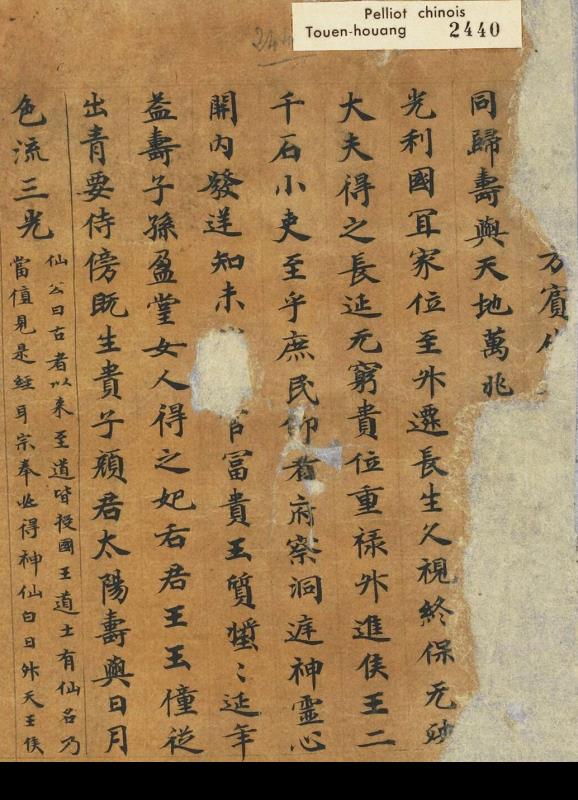 Pelliot chinois
Touen-houang 2440
万賓
同歸壽與天地萬兆
光利國冝家位至升遷長生久視終保无
大夫得之長延无窮貴位重禄升進侯王二
千石小吏至乎庶民仰君府察洞達神靈心
開內發逆知未官冨貴玉質〻延年
益壽子孫盈堂女人得之妃后君王玉僮從
出青要侍傍既生貴子顏君太陽壽與日月
色流三光
仙公曰古者以來至道皆授國王道士有仙名乃
當值見是經耳宗奉必得神仙白日升天王侯